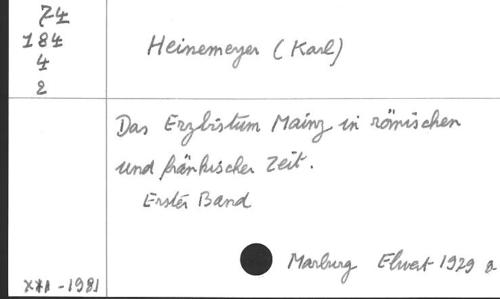 74
184
4
2
Heinemeyer (Karl)
Das Erzbistum Mainz in römischen
und fränkischer Zeit.
Erster Band
Marburg Elwert 1979 a
XXI - 1981